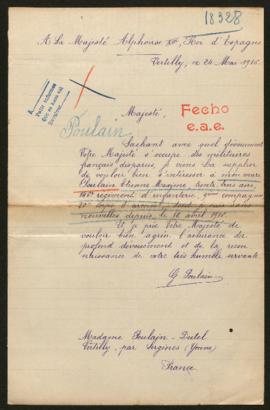 18328
A Sa Majesté Alphonse XIII, Roi d'Espagne
Vertilly, ce 24 Mai 1915.
Majesté,
Fecho
e.a.e.
Poulain
Sachant avec quel dévouement
Votre Majesté s'occupe des militaires
français disparus, je viens La supplier
de vouloir bien s'intéresser à mon mari
Poulain Etienne Maxime, trente trois ans,
régiment d'infanterie, compagnie
nouvelles depuis le avril 1915.
Et je prie Votre Majesté de
vouloir bien agréer l'assurance du
profond dévouement et de la recon
naissance de votre très humble servante
G. Poulain
Madame Poulain-Dutel
Vertilly, par Sergines (Yonne)
France.